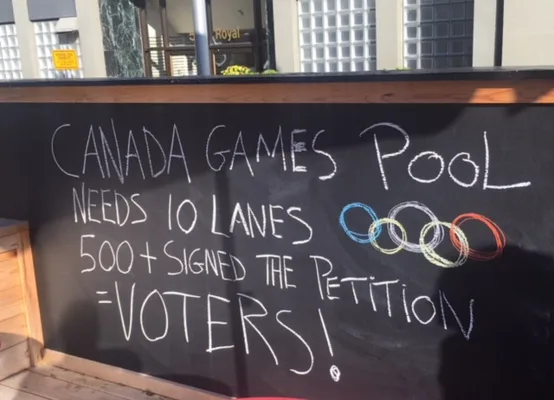 Royal
CANADA GAMES POOL
NEEDS 10 LANES
500+ SIGNED THE PETITION
=VOTERS!